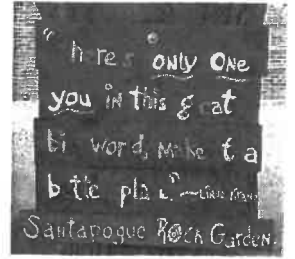 "here's only one
you in this g eat
bi word, make t a
b tte pla
Santapogue Rock Garden.